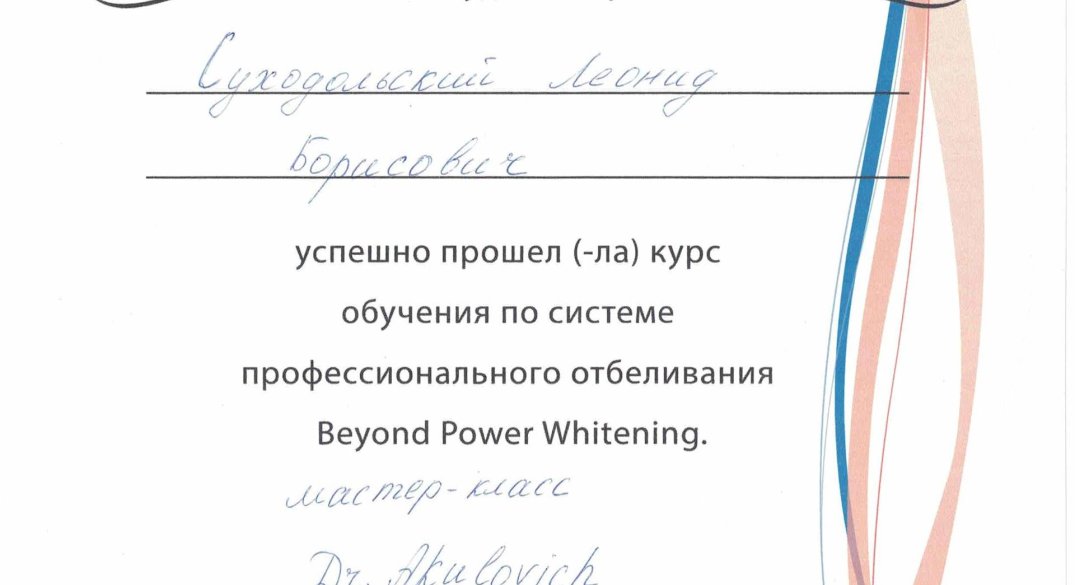 Суходольский Леонид
Борисович
успешно прошел (-ла) курс
обучения по системе
профессионального отбеливания
Beyond Power Whitening.
мастер-класс
Dr. Akulovich